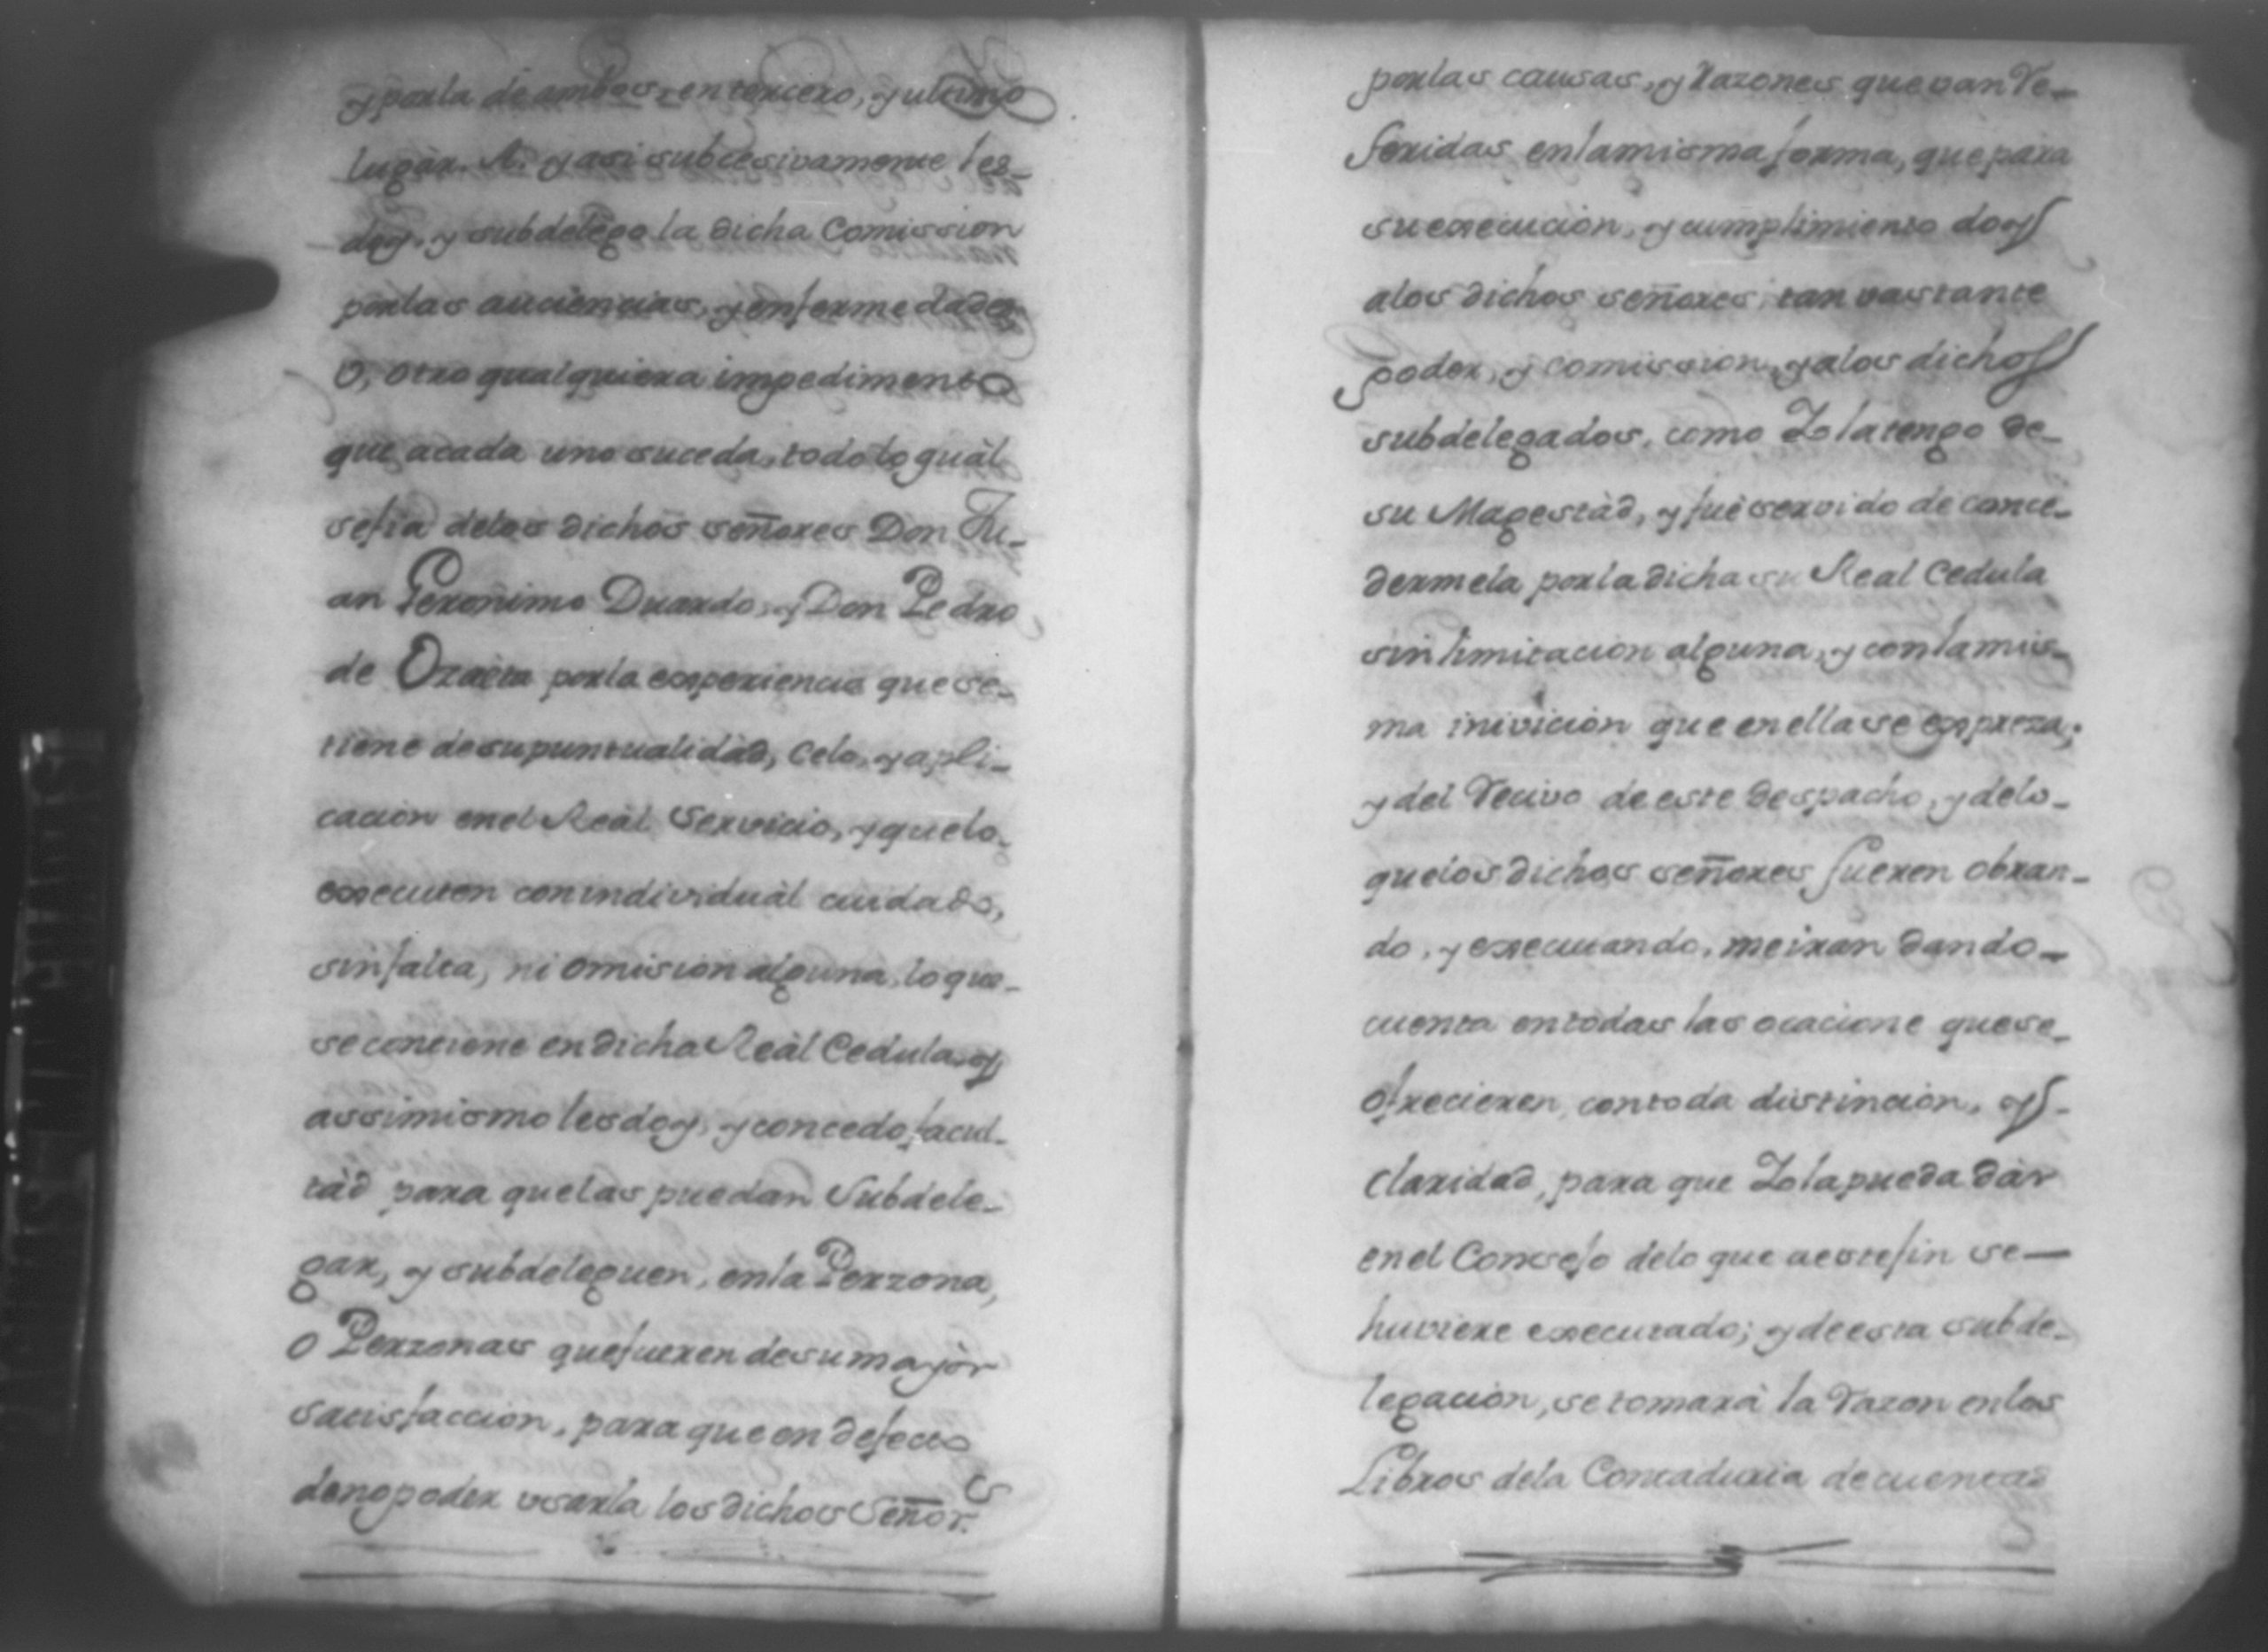 y porla de ambos, en tercero, y ultimo
lugàr. A. y asi subcesivamente les-
doy, y subdelego la dicha Comission
porlas auciencias, y enfermedades
O, otro qualquiera impedimento
que acada uno suceda, todo lo quàl
sefia delos dichos señores Don Ju-
an Geronimo Duardo, y Don Pedro
de Ozaèta porla experiencia que se-
tiene desupuntualidàd, Celo, y apli-
cacion enel Reàl Servicio, y quelo-
executen con individuàl cuidado,
sinfalta, ni omiision alguna, lo que-
se contiene en dicha Reàl Cedula, y
assimismo les doy, y concedo facul-
tàd para quelas puedan Subdele-
gar, y subdeleguen, enla Perzona,
O Perzonas que fueren desu mayòr
satisfaccion, para que en defecto
denopoder usarla los dichos Señor.s
porlas causas, y Razones que van Re-
feridas enlamisma forma, que para
su execucion, y cumplimiento doy
alos dichos señores tan vastante
poder, y comission, y alos dichos
subdelegados, como Yo la tengo de-
su Magestàd, y fuè servido de conce-
dermela porla dicha su Real Cedula
sin limitacion alguna, y conlamis-
ma inivicion que en ella se expreza;
y del Recivo de este despacho, y delo-
quelos dichos señores fueren obran-
do, y executando, me iran dando-
cuenta en todas las ocacione que se-
ofrecieren, con toda distincion, y
claridad, para que Yo la pueda dàr
en el Consejo delo que aestefin se-
huviere executado; y de esta subde-
legacion, se tomarà la Razon enlos
Libros dela Contaduria de cuentas